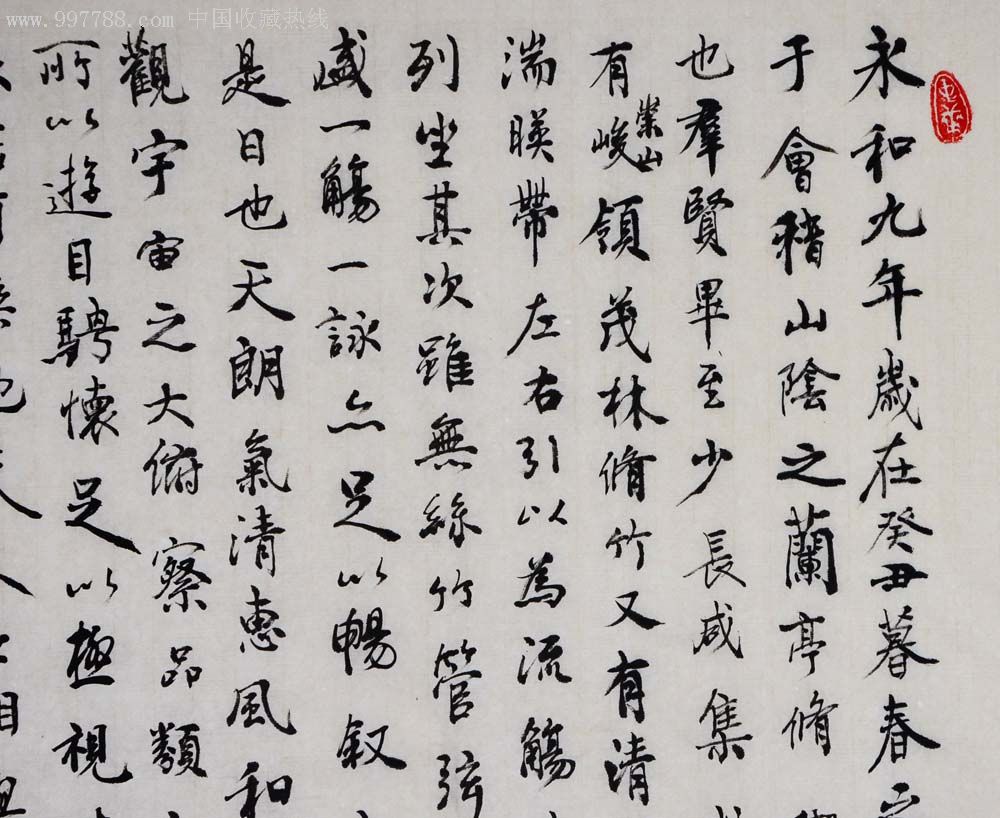 www.997788.com 中国收藏热线
永和九年歲在癸丑暮春
于會稽山陰之蘭亭脩
也羣賢畢至少長咸集
有崇山峻領茂林脩竹又有清
湍暎帶左右引以為流觴
列坐其次雖無絲竹管弦
盛一觴一詠亦足以暢叙
是日也天朗氣清惠風和
觀宇宙之大俯察品類
所以遊目騁懷足以極視